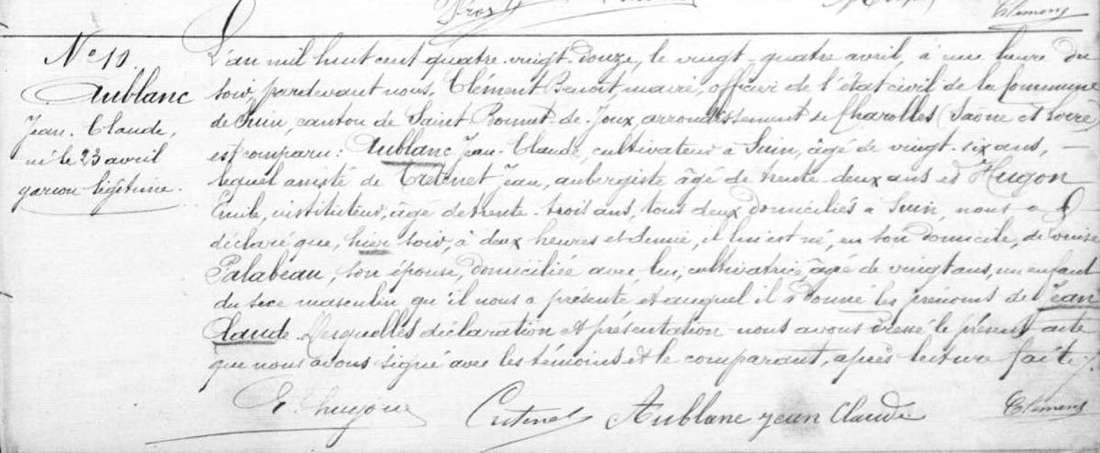 Clément
N° 10.
Aublanc
Jean-Claude,
né le 23 avril
garçon légitime.
L'an mil huit cent quatre-vingt-douze, le vingt-quatre avril, à une heure du
soir, pardevant nous, Clément Benoit, maire, officier de l'état civil de la Commune
de Suin, canton de Saint-Bonnet-de-Joux, arrondissement de Charolles (Saône et Loire)
est comparu: Aublanc Jean-Claude, cultivateur à Suin, âgé de vingt-six ans, —
lequel assisté de Jean, aubergiste âgé de trente-deux ans et Hugon
Emile, instituteur, âgé de trente-trois ans, tous deux domiciliés à Suin, nous a
déclaré que, hier soir, à deux heures et demie, il lui est né, en son domicile, de
Palabeau, son épouse, domiciliée avec lui, cultivatrice, âgée de vingt ans, un enfant
du sexe masculin qu'il nous a présenté et auquel il a donné les prénoms de Jean
Claude. Lesquelles déclaration et présentation nous avons dressé le présent acte
que nous avons signé avec les témoins et le comparant, après lecture faite.
E. hugon Aublanc jean Claude Clément